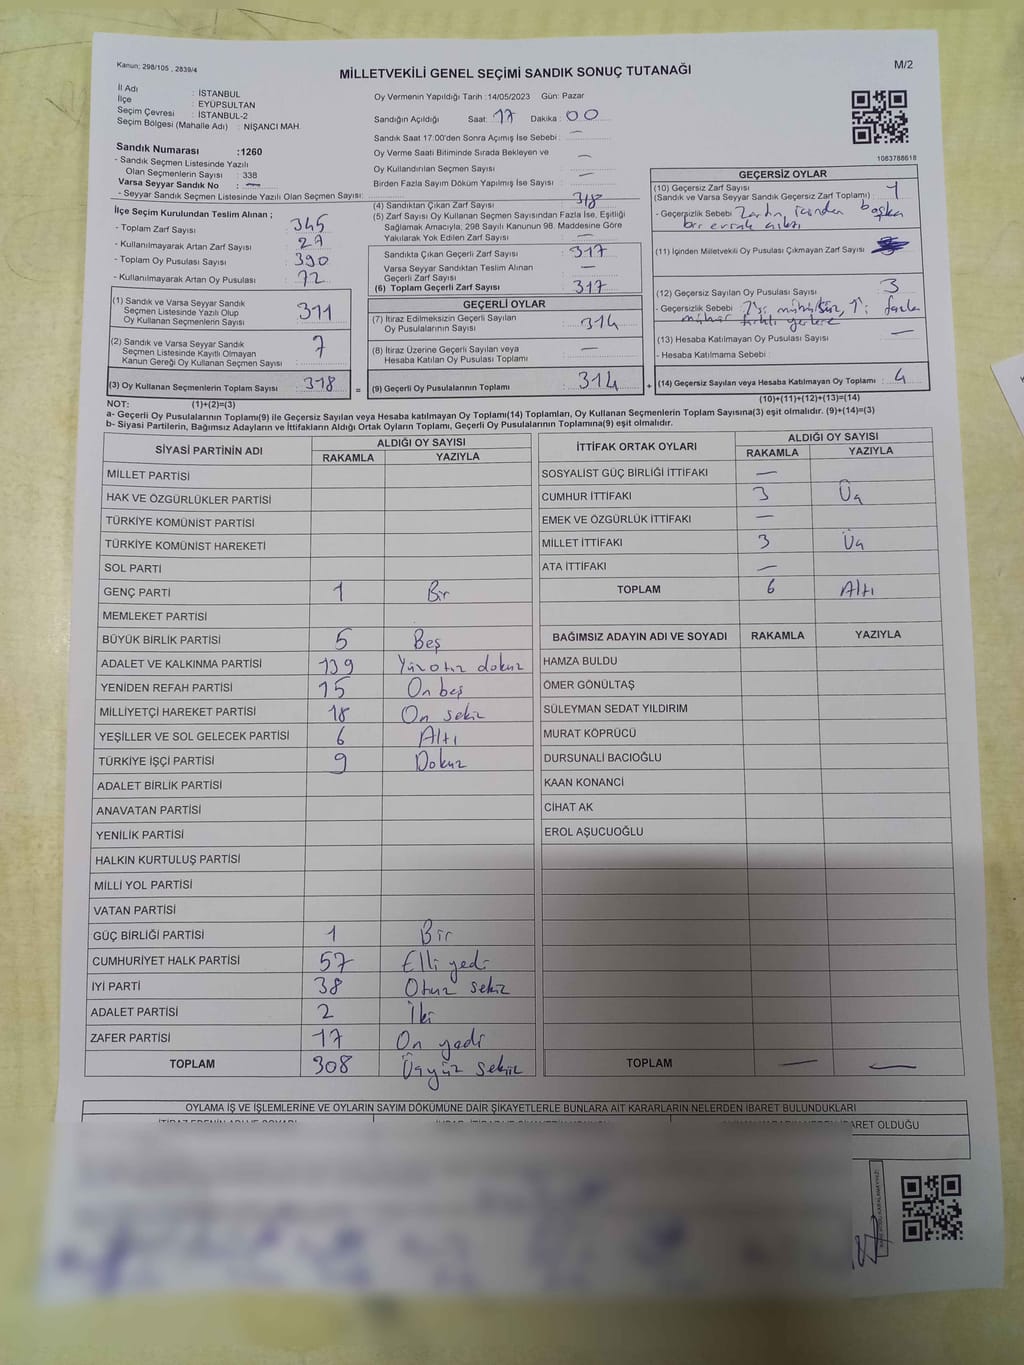 Kanun; 298/105 , 2839/4
MİLLETVEKİLİ GENEL SEÇİMİ SANDIK SONUÇ TUTANAĞI
M/2
İl Adı : İSTANBUL
İlçe : EYÜPSULTAN
Seçim Çevresi : İSTANBUL-2
Seçim Bölgesi (Mahalle Adı) : NİŞANCI MAH.
Sandık Numarası :1260
- Sandık Seçmen Listesinde Yazılı
Olan Seçmenlerin Sayısı : 338
Varsa Seyyar Sandık No : —
- Seyyar Sandık Seçmen Listesinde Yazılı Olan Seçmen Sayısı:
Oy Vermenin Yapıldığı Tarih :14/05/2023 Gün: Pazar
Sandığın Açıldığı Saat: 17 Dakika : 00
Sandık Saat 17:00'den Sonra Açımış İse Sebebi : —
Oy Verme Saati Bitiminde Sırada Bekleyen ve
Oy Kullandırılan Seçmen Sayısı : —
Birden Fazla Sayım Döküm Yapılmış İse Sayısı : —
1083788618
İlçe Seçim Kurulundan Teslim Alınan ;
- Toplam Zarf Sayısı : 345
- Kullanılmayarak Artan Zarf Sayısı : 27
- Toplam Oy Pusulası Sayısı : 390
- Kullanılmayarak Artan Oy Pusulası : 72
(1) Sandık ve Varsa Seyyar Sandık
Seçmen Listesinde Yazılı Olup
Oy Kullanan Seçmenlerin Sayısı : 311
(2) Sandık ve Varsa Seyyar Sandık
Seçmen Listesinde Kayıtlı Olmayan
Kanun Gereği Oy Kullanan Seçmen Sayısı : 7
(3) Oy Kullanan Seçmenlerin Toplam Sayısı : 318 =
(4) Sandıktan Çıkan Zarf Sayısı : 318
(5) Zarf Sayısı Oy Kullanan Seçmen Sayısından Fazla İse, Eşitliği
Sağlamak Amacıyla, 298 Sayılı Kanunun 98. Maddesine Göre
Yakılarak Yok Edilen Zarf Sayısı : —
Sandıkta Çıkan Geçerli Zarf Sayısı : 317
Varsa Seyyar Sandıktan Teslim Alınan
Geçerli Zarf Sayısı : —
(6) Toplam Geçerli Zarf Sayısı : 317
GEÇERLİ OYLAR
(7) İtiraz Edilmeksizin Geçerli Sayılan
Oy Pusulalarının Sayısı : 314
(8) İtiraz Üzerine Geçerli Sayılan veya
Hesaba Katılan Oy Pusulası Toplamı : —
(9) Geçerli Oy Pusulalarının Toplamı : 314 +
GEÇERSİZ OYLAR
(10) Geçersiz Zarf Sayısı
(Sandık ve Varsa Seyyar Sandık Geçersiz Zarf Toplamı) : 1
- Geçersizlik Sebebi : Zarfın içinden başka
bir evrak çıktı
(11) İçinden Milletvekili Oy Pusulası Çıkmayan Zarf Sayısı :
(12) Geçersiz Sayılan Oy Pusulası Sayısı : 3
- Geçersizlik Sebebi : 2'si mühürsüz, 1'i fazla
mühür farklı yerlere
(13) Hesaba Katılmayan Oy Pusulası Sayısı : —
- Hesaba Katılmama Sebebi :
(14) Geçersiz Sayılan veya Hesaba Katılmayan Oy Toplamı : 4
NOT: (1)+(2)=(3) (10)+(11)+(12)+(13)=(14)
a- Geçerli Oy Pusulalarının Toplamı(9) ile Geçersiz Sayılan veya Hesaba katılmayan Oy Toplamı(14) Toplamları, Oy Kullanan Seçmenlerin Toplam Sayısına(3) eşit olmalıdır. (9)+(14)=(3)
b- Siyasi Partilerin, Bağımsız Adayların ve İttifakların Aldığı Ortak Oyların Toplamı, Geçerli Oy Pusulalarının Toplamına(9) eşit olmalıdır.
SİYASİ PARTİNİN ADI ALDIĞI OY SAYISI
RAKAMLA YAZIYLA
MİLLET PARTİSİ
HAK VE ÖZGÜRLÜKLER PARTİSİ
TÜRKİYE KOMÜNİST PARTİSİ
TÜRKİYE KOMÜNİST HAREKETİ
SOL PARTİ
GENÇ PARTİ 1 Bir
MEMLEKET PARTİSİ
BÜYÜK BİRLİK PARTİSİ 5 Beş
ADALET VE KALKINMA PARTİSİ 139 Yüz otuz dokuz
YENİDEN REFAH PARTİSİ 15 On beş
MİLLİYETÇİ HAREKET PARTİSİ 18 On sekiz
YEŞİLLER VE SOL GELECEK PARTİSİ 6 Altı
TÜRKİYE İŞÇİ PARTİSİ 9 Dokuz
ADALET BİRLİK PARTİSİ
ANAVATAN PARTİSİ
YENİLİK PARTİSİ
HALKIN KURTULUŞ PARTİSİ
MİLLİ YOL PARTİSİ
VATAN PARTİSİ
GÜÇ BİRLİĞİ PARTİSİ 1 Bir
CUMHURİYET HALK PARTİSİ 57 Elli yedi
İYİ PARTİ 38 Otuz sekiz
ADALET PARTİSİ 2 İki
ZAFER PARTİSİ 17 On yedi
TOPLAM 308 Üçyüz sekiz
İTTİFAK ORTAK OYLARI ALDIĞI OY SAYISI
RAKAMLA YAZIYLA
SOSYALİST GÜÇ BİRLİĞİ İTTİFAKI —
CUMHUR İTTİFAKI 3 Üç
EMEK VE ÖZGÜRLÜK İTTİFAKI —
MİLLET İTTİFAKI 3 Üç
ATA İTTİFAKI —
TOPLAM 6 Altı
BAĞIMSIZ ADAYIN ADI VE SOYADI RAKAMLA YAZIYLA
HAMZA BULDU
ÖMER GÖNÜLTAŞ
SÜLEYMAN SEDAT YILDIRIM
MURAT KÖPRÜCÜ
DURSUNALİ BACIOĞLU
KAAN KONANCİ
CİHAT AK
EROL AŞUCUOĞLU
TOPLAM — —
OYLAMA İŞ VE İŞLEMLERİNE VE OYLARIN SAYIM DÖKÜMÜNE DAİR ŞİKAYETLERLE BUNLARA AİT KARARLARIN NELERDEN İBARET BULUNDUKLARI
İBARET OLDUĞU